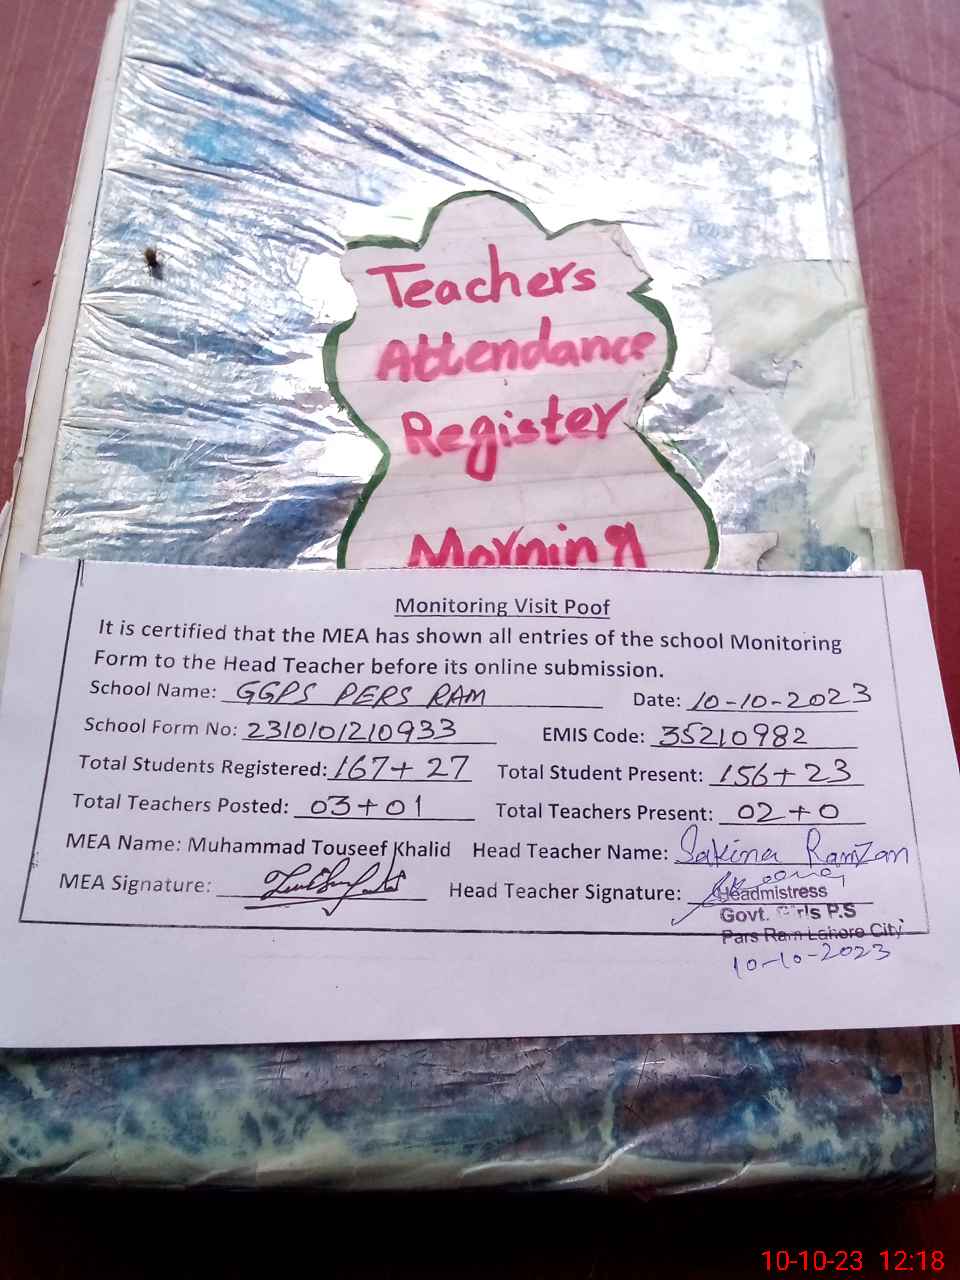 Teachers
Attendance
Register
Morning
Monitoring Visit Poof
It is certified that the MEA has shown all entries of the school Monitoring
Form to the Head Teacher before its online submission.
School Name: GGPS PERS RAM Date: 10-10-2023
School Form No: 2310101210933 EMIS Code: 35210982
Total Students Registered: 167+27 Total Student Present: 156+23
Total Teachers Posted: 03+01 Total Teachers Present: 02+0
MEA Name: Muhammad Touseef Khalid Head Teacher Name: Sakina Ramzan
MEA Signature: Head Teacher Signature:
Headmistress
Govt. Girls P.S
Pars Ram Lahore City
10-10-2023
10-10-23 12:18